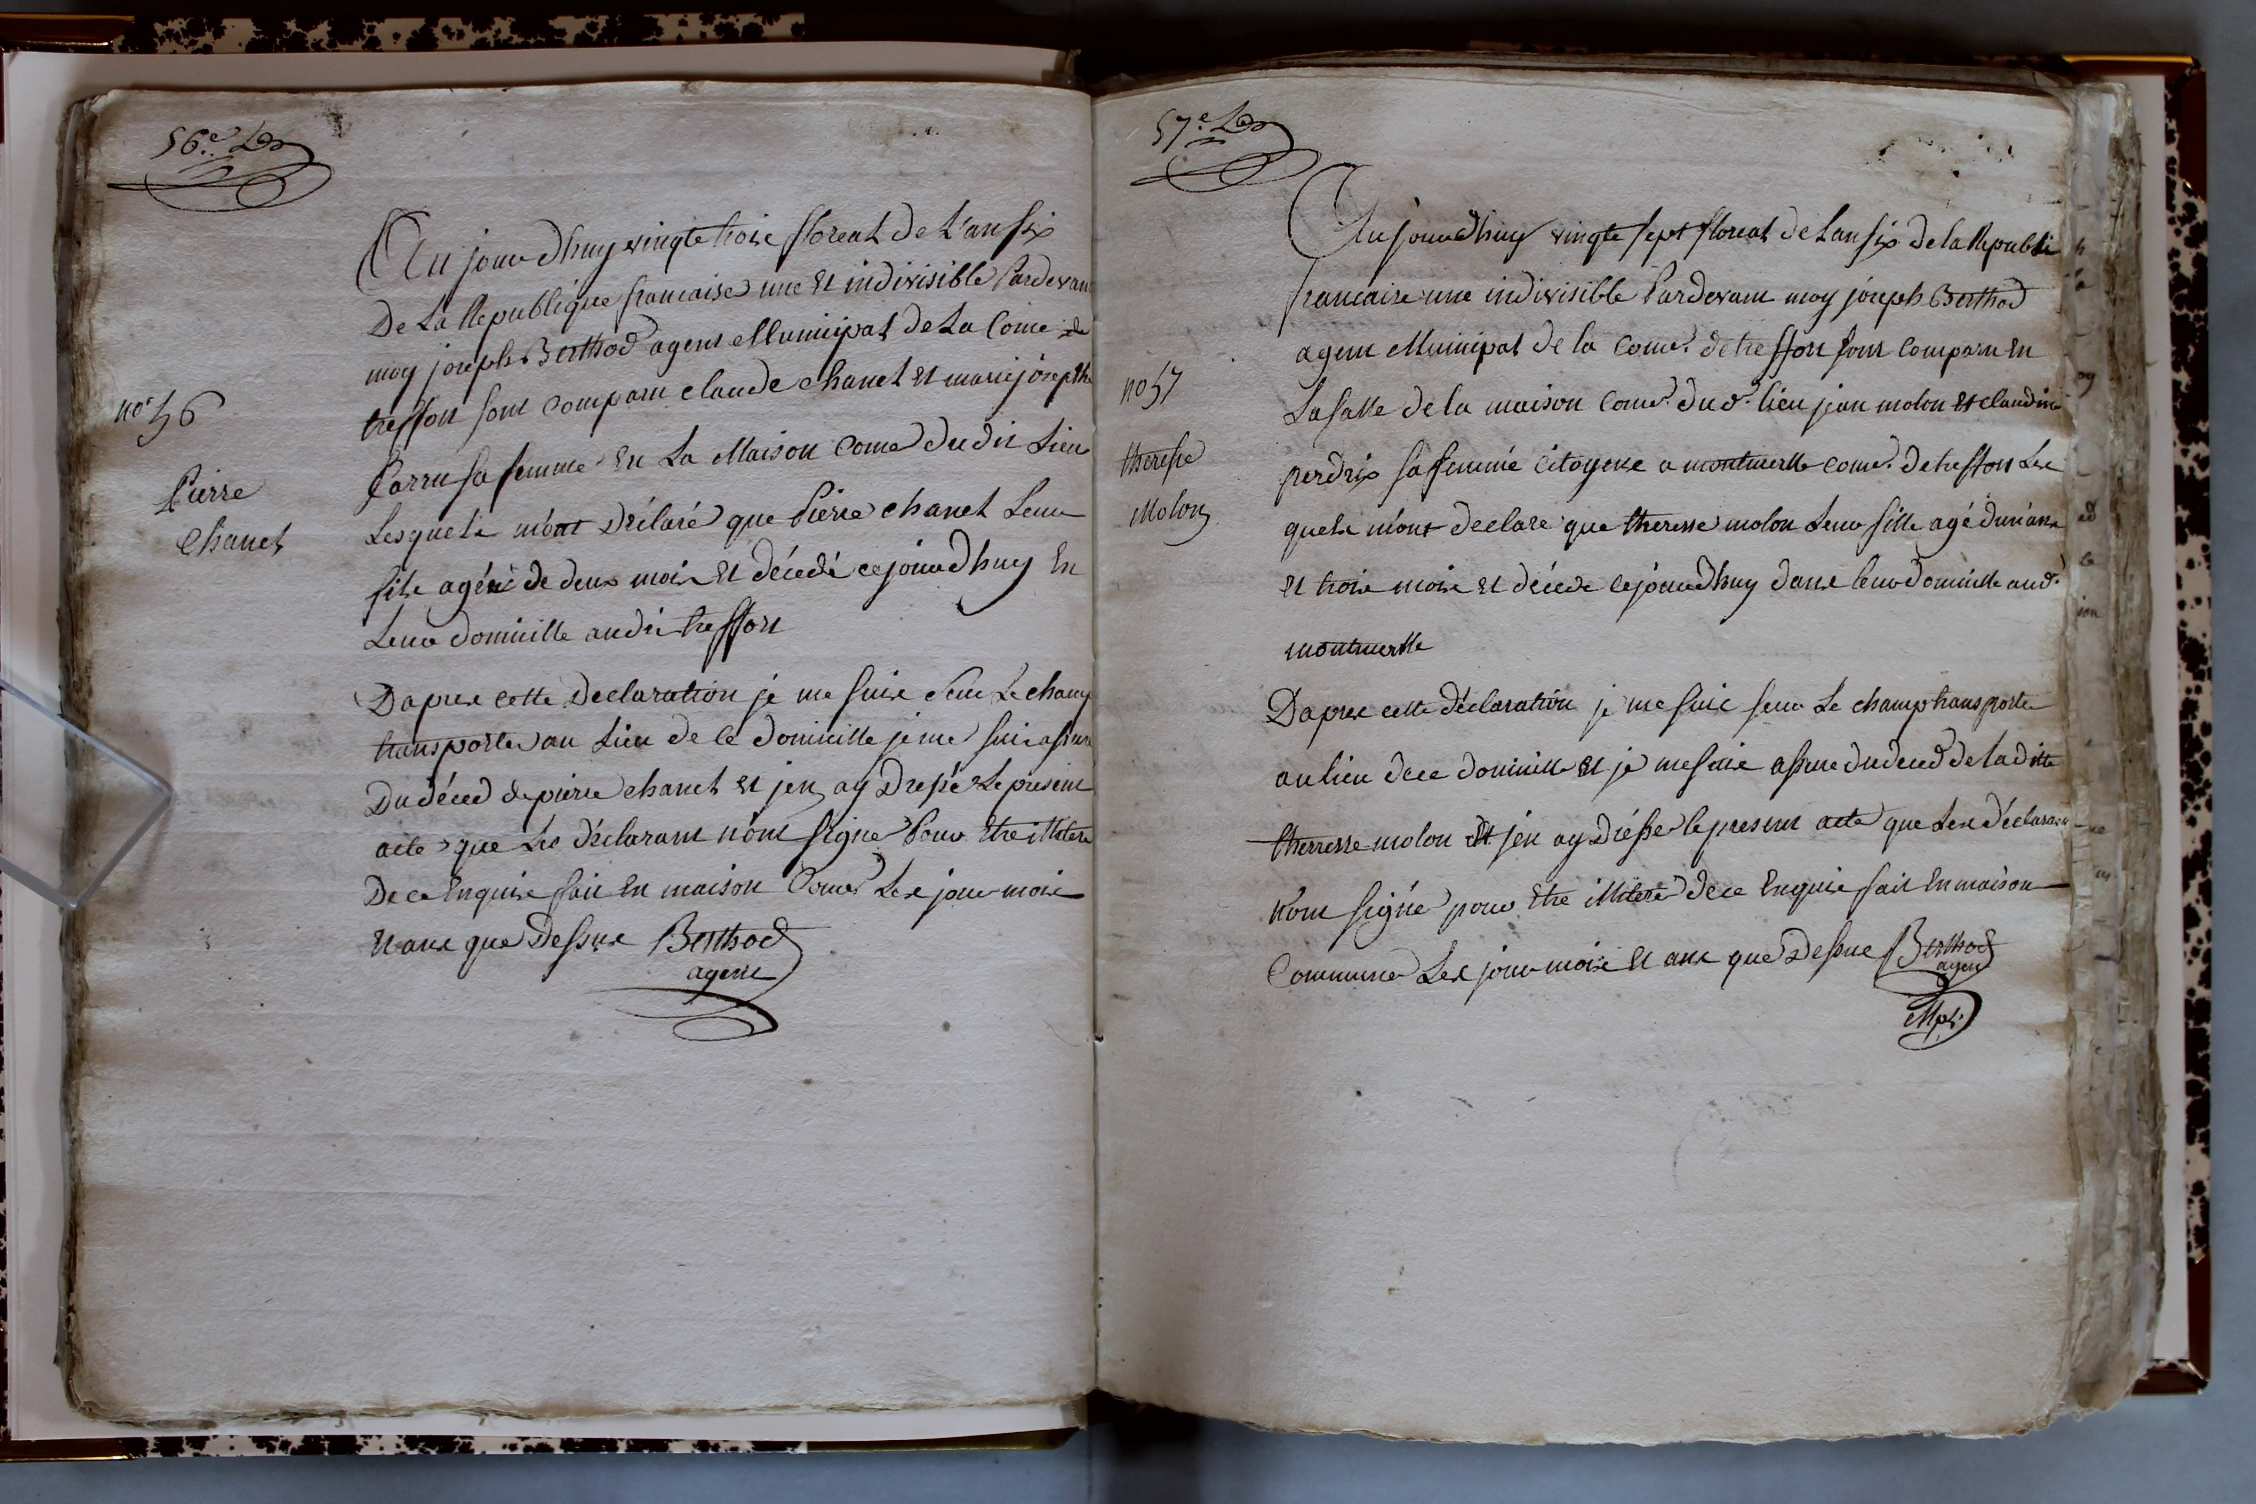 56e.
nos 56
Pierre
Chanel
Au jourdhuy vingte trois floreal de L'an six
De La Republique francaise une et indivisible Pardevant
moy joseph Berthod agent Municipal de La Come de
treffort sont comparu claude chanel et marie josephte
sa femme en La Maison Come dudit Lieu
Lesquels m'ont déclaré que Pierre chanel Leur
fils agée de deux mois et décédé ce jourdhuy En
Leur domicille audit treffort
Dapres cette Declaration je me suis sur Le champ
transporter au Lieu de ce domicille je me suis assure
Du déced de pierre chanel et jen ay Dressé Le present
acte que Les déclarant n'ont signe Pour être illiteré
De ce Enquis fait En maison Come Les jour mois
et ans que Dessus Berthod
agent
57e.
no 57
therese
Molon
Au jourdhuy vingte sept floreal de Lan six de la Republi
francaise une indivisible Pardevant moy joseph Berthod
agent Municipal de la Come. de treffort sont comparu En
La salle de la maison Come. dud. lieu jean molon et claudine
perdrix sa femme citoyens a montmerle come. de treffort Les
quels m'ont declare que theresse molon Leur fille agé dun ans
et trois mois et décede ce jourdhuy dans leur domicille aud.
montmerle
Dapres cette déclaration je me suis sur Le champ transporter
au lieu de ce domicille et je me suis assure du deced de laditte
therresse molon et jen ay Drésse le present acte que Les déclarant
n'ont signé pour être illiteré de ce Enquis fait En maison
Commune Les jour mois et ans que Dessus Berthod
agent
Mpl.